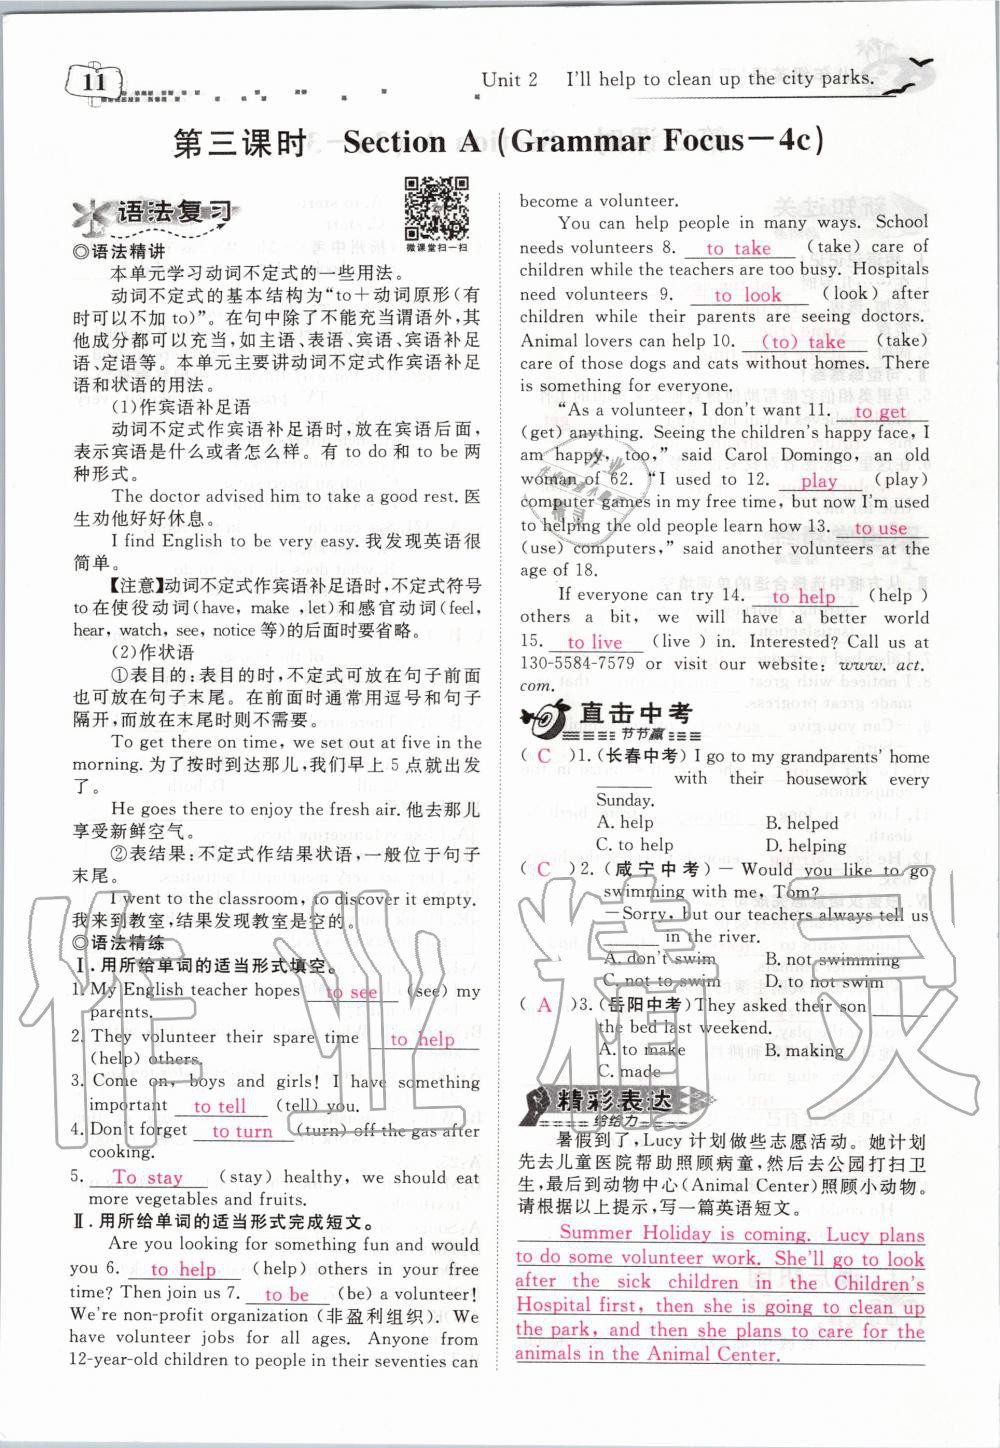 11
Unit 2 I'll help to clean up the city parks.
第三课时 Section A (Grammar Focus－4c)
语法复习
微课堂扫一扫
◎语法精讲
本单元学习动词不定式的一些用法。
动词不定式的基本结构为“to＋动词原形(有
时可以不加 to)”。在句中除了不能充当谓语外,其
他成分都可以充当,如主语、表语、宾语、宾语补足
语、定语等。本单元主要讲动词不定式作宾语补足
语和状语的用法。
(1)作宾语补足语
动词不定式作宾语补足语时,放在宾语后面,
表示宾语是什么或者怎么样。有 to do 和 to be 两
种形式。
The doctor advised him to take a good rest. 医
生劝他好好休息。
I find English to be very easy. 我发现英语很
简单。
【注意】动词不定式作宾语补足语时,不定式符号
to 在使役动词(have, make ,let)和感官动词(feel,
hear, watch, see, notice 等)的后面时要省略。
(2)作状语
①表目的:表目的时,不定式可放在句子前面
也可放在句子末尾。在前面时通常用逗号和句子
隔开,而放在末尾时则不需要。
To get there on time, we set out at five in the
morning. 为了按时到达那儿,我们早上 5 点就出发
了。
He goes there to enjoy the fresh air. 他去那儿
享受新鲜空气。
②表结果:不定式作结果状语,一般位于句子
末尾。
I went to the classroom, to discover it empty.
我来到教室,结果发现教室是空的。
◎语法精练
Ⅰ. 用所给单词的适当形式填空。
1. My English teacher hopes to see (see) my
parents.
2. They volunteer their spare time to help
(help) others.
3. Come on, boys and girls! I have something
important to tell (tell) you.
4. Don't forget to turn (turn) off the gas after
cooking.
5. To stay (stay) healthy, we should eat
more vegetables and fruits.
Ⅱ. 用所给单词的适当形式完成短文。
Are you looking for something fun and would
you 6. to help (help) others in your free
time? Then join us 7. to be (be) a volunteer!
We're non-profit organization (非盈利组织). We
have volunteer jobs for all ages. Anyone from
12-year-old children to people in their seventies can
become a volunteer.
You can help people in many ways. School
needs volunteers 8. to take (take) care of
children while the teachers are too busy. Hospitals
need volunteers 9. to look (look) after
children while their parents are seeing doctors.
Animal lovers can help 10. (to) take (take)
care of those dogs and cats without homes. There
is something for everyone.
“As a volunteer, I don't want 11. to get
(get) anything. Seeing the children's happy face, I
am happy, too,” said Carol Domingo, an old
woman of 62. “I used to 12. play (play)
computer games in my free time, but now I'm used
to helping the old people learn how 13. to use
(use) computers,” said another volunteers at the
age of 18.
If everyone can try 14. to help (help )
others a bit, we will have a better world
15. to live (live ) in. Interested? Call us at
130-5584-7579 or visit our website: www. act.
com.
直击中考
节节赢
( C )1. (长春中考) I go to my grandparents' home
______ with their housework every
Sunday.
A. help B. helped
C. to help D. helping
( C )2. (咸宁中考)－Would you like to go
swimming with me, Tom?
－Sorry, but our teachers always tell us
______ in the river.
A. don't swim B. not swimming
C. not to swim D. to not swim
( A )3. (岳阳中考) They asked their son ______
the bed last weekend.
A. to make B. making
C. made
精彩表达
给给力
暑假到了, Lucy 计划做些志愿活动。她计划
先去儿童医院帮助照顾病童,然后去公园打扫卫
生,最后到动物中心(Animal Center)照顾小动物。
请根据以上提示,写一篇英语短文。
Summer Holiday is coming. Lucy plans
to do some volunteer work. She'll go to look
after the sick children in the Children's
Hospital first, then she is going to clean up
the park, and then she plans to care for the
animals in the Animal Center.
作业精灵